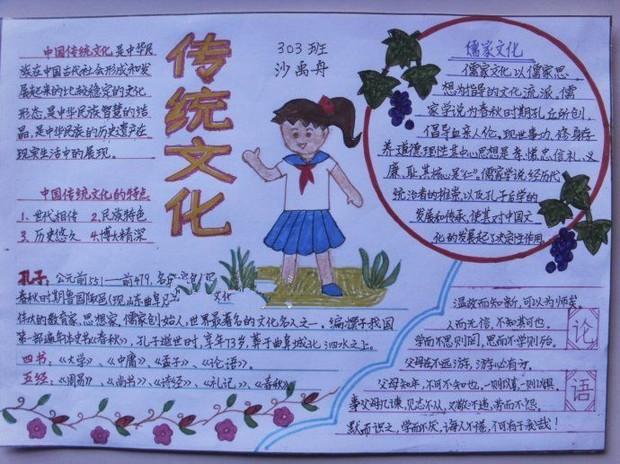 中国传统文化是中华民
族在中国古代社会形成和发
展起来的比较稳定的文化
形态,是中华民族智慧的结
晶,是中华民族的历史遗产在
现实生活中的展现。
中国传统文化的特点
1、世代相传 2、民族特色
3、历史悠久 4、博大精深
传统文化
303班
沙禹舟
儒家文化
儒家文化以儒家思
想为指导的文化流派。儒
家学说为春秋时期孔丘所创,
倡导血亲人伦。现世事功,修身存
养,道德理性其中心思想是孝、悌、忠、信、礼、义、
廉、耻,其核心是“仁”。儒家学说经历代
统治者的推崇,以及孔子后学的
发展和传承,使其对中国文
化的发展起了决定性作用
孔子:公元前551—前479,名
春秋时期鲁国陬邑(现山东曲阜 文化
伟大的教育家、思想家,儒家创始人,世界最著名的文化名人之一。编撰了我国
第一部编年体史书《春秋》,孔子逝世时,享年73岁,葬于曲阜城北泗水之上。
四书:《大学》、《中庸》、《孟子》、《论语》。
五经:《周易》、《尚书》、《诗经》、《礼记》、《春秋》
论语
温故而知新,可以为师矣。
人而无信,不知其可也。
学而不思则罔,思而不学则殆。
父母在不远游,游必有方。
父母知年,不可不知也,一则以喜,一则以惧。
事父母几谏,见志不从,又敬不违,劳而不怨。
默而识之,学而不厌,诲人不倦,不可有于我哉!